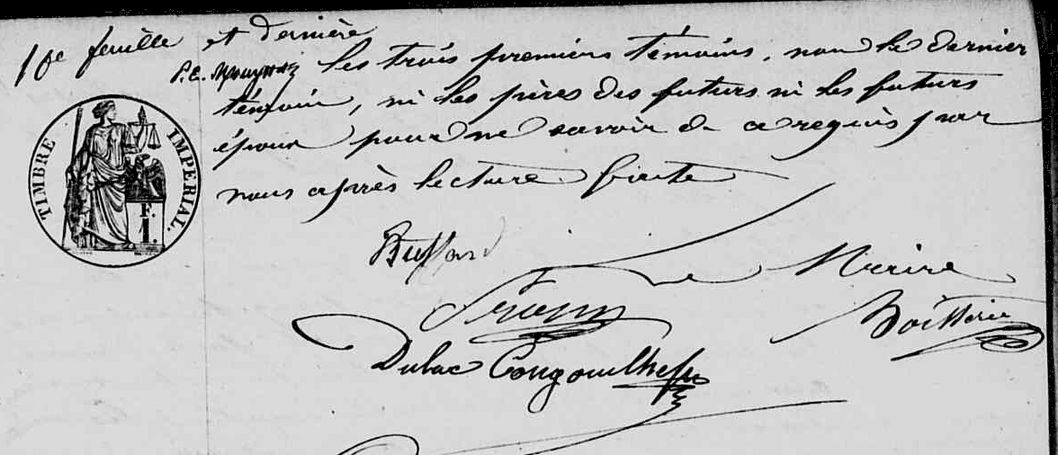 10e feuille et dernière
P.E.
les trois premiers témoins, non le dernier
témoin, ni les pères des futurs ni les futurs
époux pour ne savoir de ce requis par
nous après lecture faite
TIMBRE IMPERIAL.
F.
1.
Buffard
Le Maire
Dulac